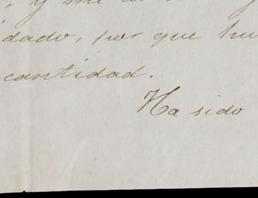 , y me
dado, por que hu
cantidad.
Ha sido